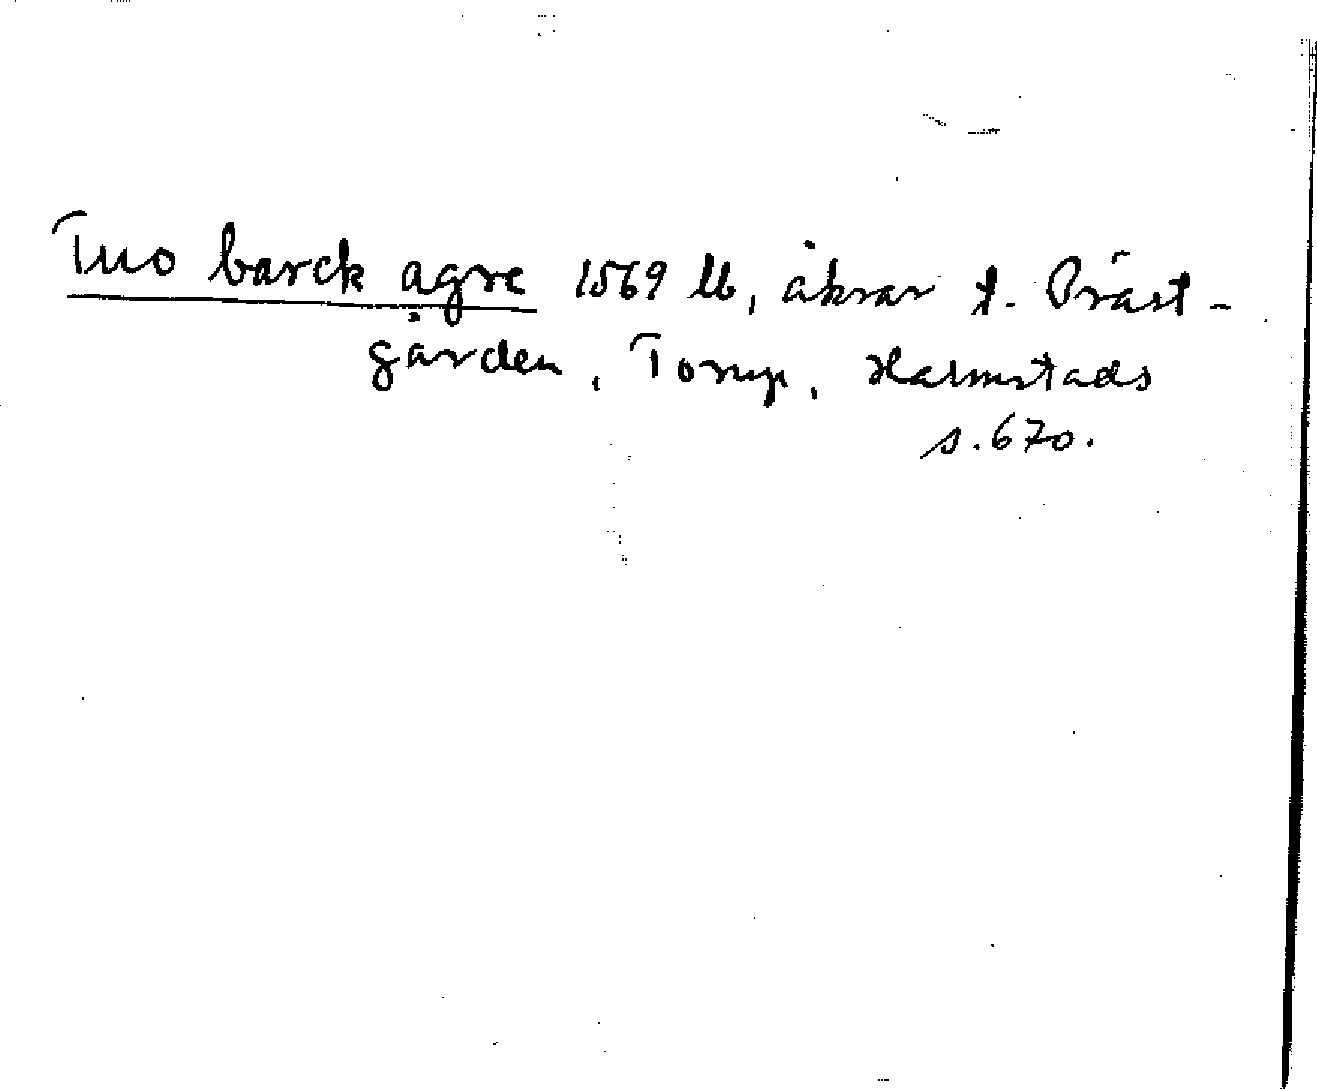 Tuo barck agre 1569 lb, åkrar t. Präst-
gården, Torup, Halmstads
s. 670.